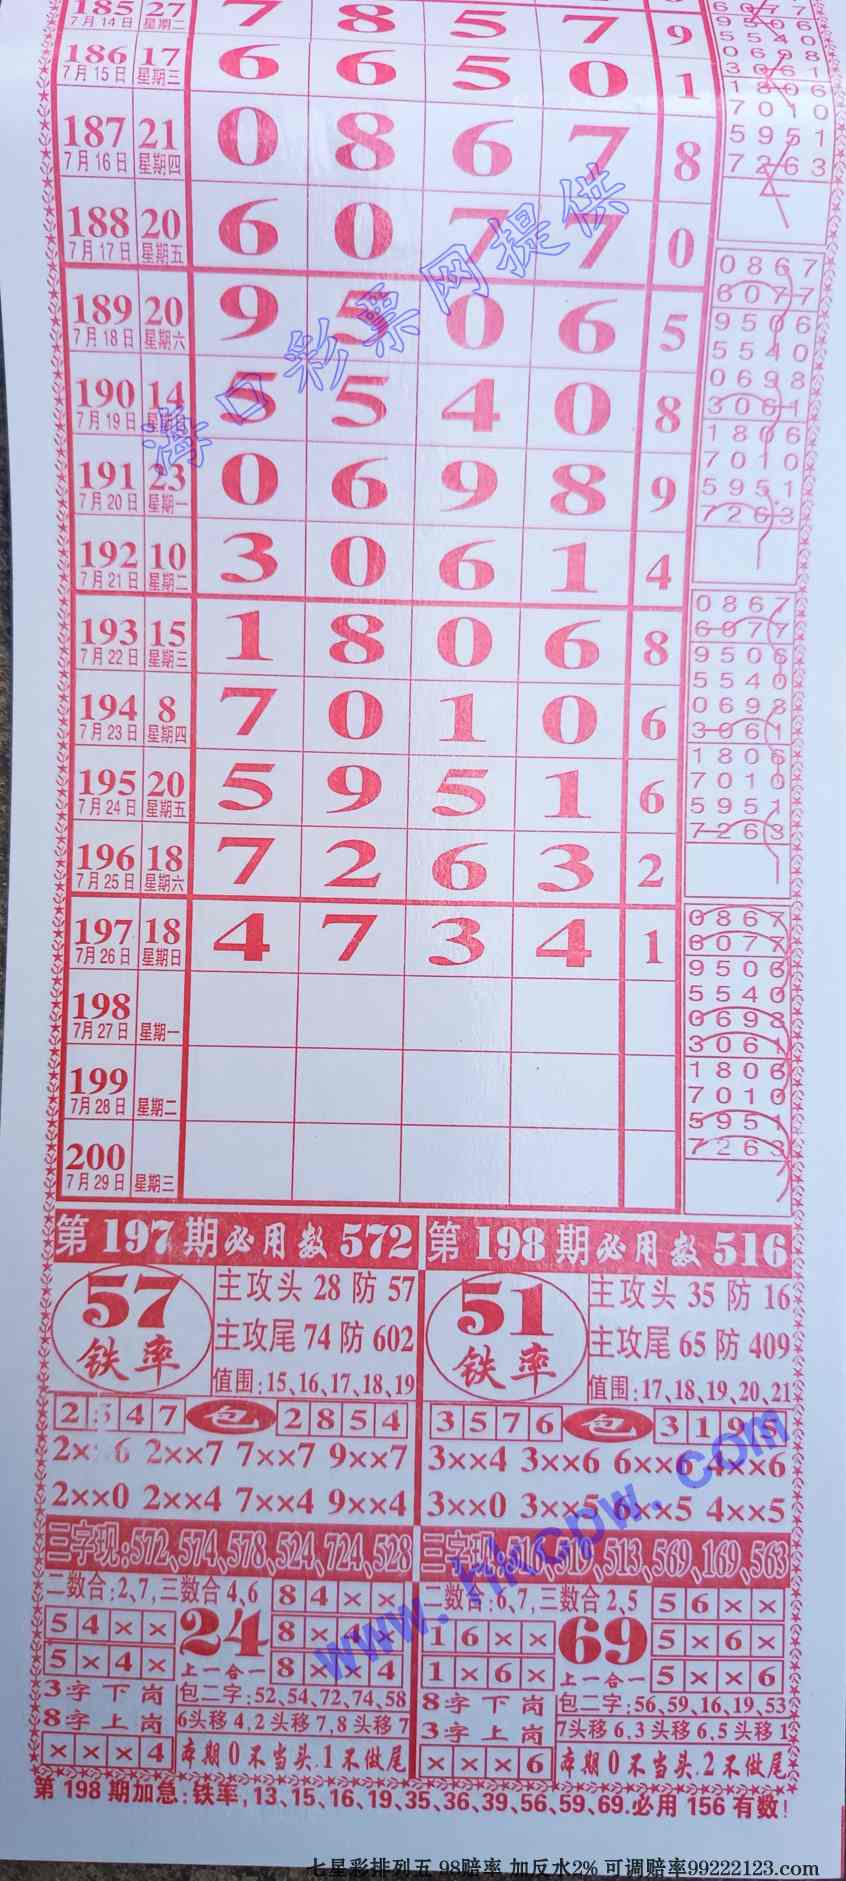 185 27 7 8 5 7 9
7月14日 星期二
186 17 6 6 5 0 1
7月15日 星期三
187 21 0 8 6 7 8
7月16日 星期四
188 20 6 0 7 7 0
7月17日 星期五
189 20 9 5 0 6 5
7月18日 星期六
190 14 5 5 4 0 8
7月19日
191 23 0 6 9 8 9
7月20日 星期一
192 10 3 0 6 1 4
7月21日 星期二
193 15 1 8 0 6 8
7月22日 星期三
194 8 7 0 1 0 6
7月23日 星期四
195 20 5 9 5 1 6
7月24日 星期五
196 18 7 2 6 3 2
7月25日 星期六
197 18 4 7 3 4 1
7月26日 星期日
198
7月27日 星期一
199
7月28日 星期二
200
7月29日 星期三
9506
5540
0698
3061
1806
7010
5951
7263
0867
6077
9506
5540
0698
3061
1806
7010
5951
7263
0867
6077
9506
5540
0698
3061
1806
7010
5951
7263
0867
6077
9506
5540
0698
3061
1806
7010
5951
7263
海口彩票网提供
第197期必用数572
57
铁率
主攻头28防57
主攻尾74防602
值围:15、16、17、18、19
2 5 4 7 包 2 8 5 4
2××6 2××7 7××7 9××7
2××0 2××4 7××4 9××4
三字现:572、574、578、524、724、528
二数合:2,7,三数合4,6
8 4 × ×
5 4 × ×
24
8 × 4 ×
5 × 4 ×
上一合一
8 × × 4
3字下岗
包二字:52、54、72、74、58
8字上岗
6头移4,2头移7,8头移7
× × × 4
本期0不当头.1不做尾
第198期必用数516
51
铁率
主攻头35防16
主攻尾65防409
值围:17、18、19、20、21
3 5 7 6 包 3 1 9 5
3××4 3××6 6××6 4××6
3××0 3××5 6××5 4××5
三字现:516、519、513、569、169、563
二数合:6,7,三数合2,5
5 6 × ×
1 6 × ×
69
5 × 6 ×
1 × 6 ×
上一合一
5 × × 6
8字下岗
包二字:56、59、16、19、53
3字上岗
7头移6,3头移6,5头移1
× × × 6
本期0不当头.2不做尾
www.hkcpw.com
第198期加急:铁率,13、15、16、19、35、36、39、56、59、69.必用156有数!
七星彩排列五 98赔率 加反水2% 可调赔率99222123.com